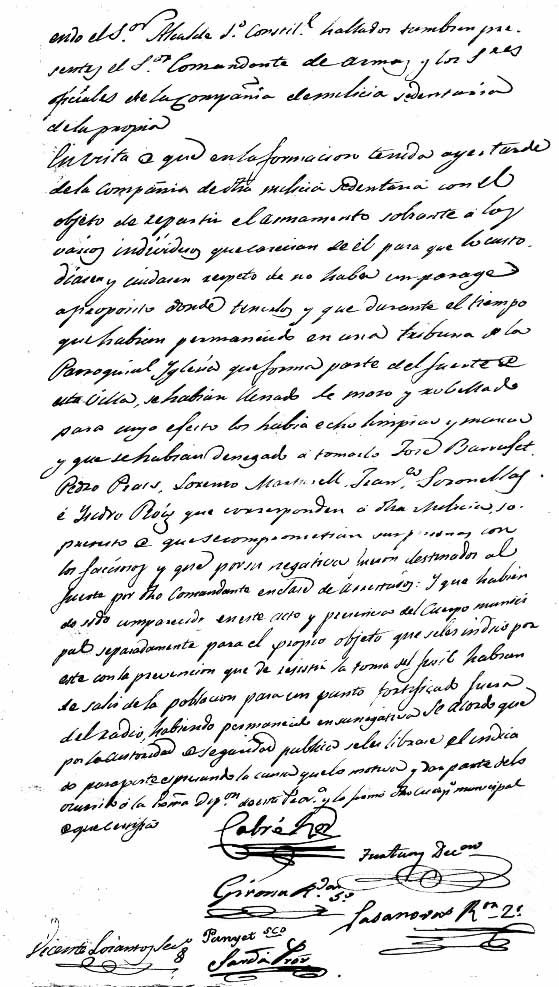 endo el S.or Alcalde 1.o Constit.l hallados tambien pre-
sentes el S.or Comandante de armas y los S.res
oficiales de la Compañia de milicia sedentaria
de la propia
En vista de que en la formacion tenida ayer tarde
de la Compañia de dha milicia sedentaria con el
objeto de repartir el armamento sobrante á los
varios individuos que carecian de él para que lo custo-
diasen y cuidasen respeto de no haber un parage
apropósito donde tenerlos y que durante el tiempo
que habian permanecido en una tribuna de la
Parroquial Iglesia que forma parte del fuerte de
esta Villa, se habian llenado de moro y
para cuyo efecto los habia echo limpiar y
y que se habian denegado á tomarlo José Barrufet
Pedro Prats, Lorenzo Martorell, Fran.co Soronellas
é Isidro Roig que corresponden á dha Milicia, so
pretesto de que se comprometian sus personas con
los facciosos y que por su negativa fueron destinados al
fuerte por dho Comandante en clase de Arrestados: Y que habien
do sido comparecido en este acto y presencia del Cuerpo munici
pal separadamente para el propio objeto que seles indicó por
este con la prevencion que de resistir la toma del fusil habian
de salir de la poblacion para un punto fortificado fuera
del radio, habiendo permanecido en su negativa Se acordó que
por la autoridad de seguridad publica seles librase el indica
do pasaporte espresando la causa que lo motiva y dar parte de lo
ocurrido á la Exma Dip.on de esta Prov.a y lo firmó dho Cuerpo municipal
de que certifico
Cabré
Decno
Girona
Casanovas R.or 2.o
Vicente Sec.o
Panyet sco
Sardá Pror